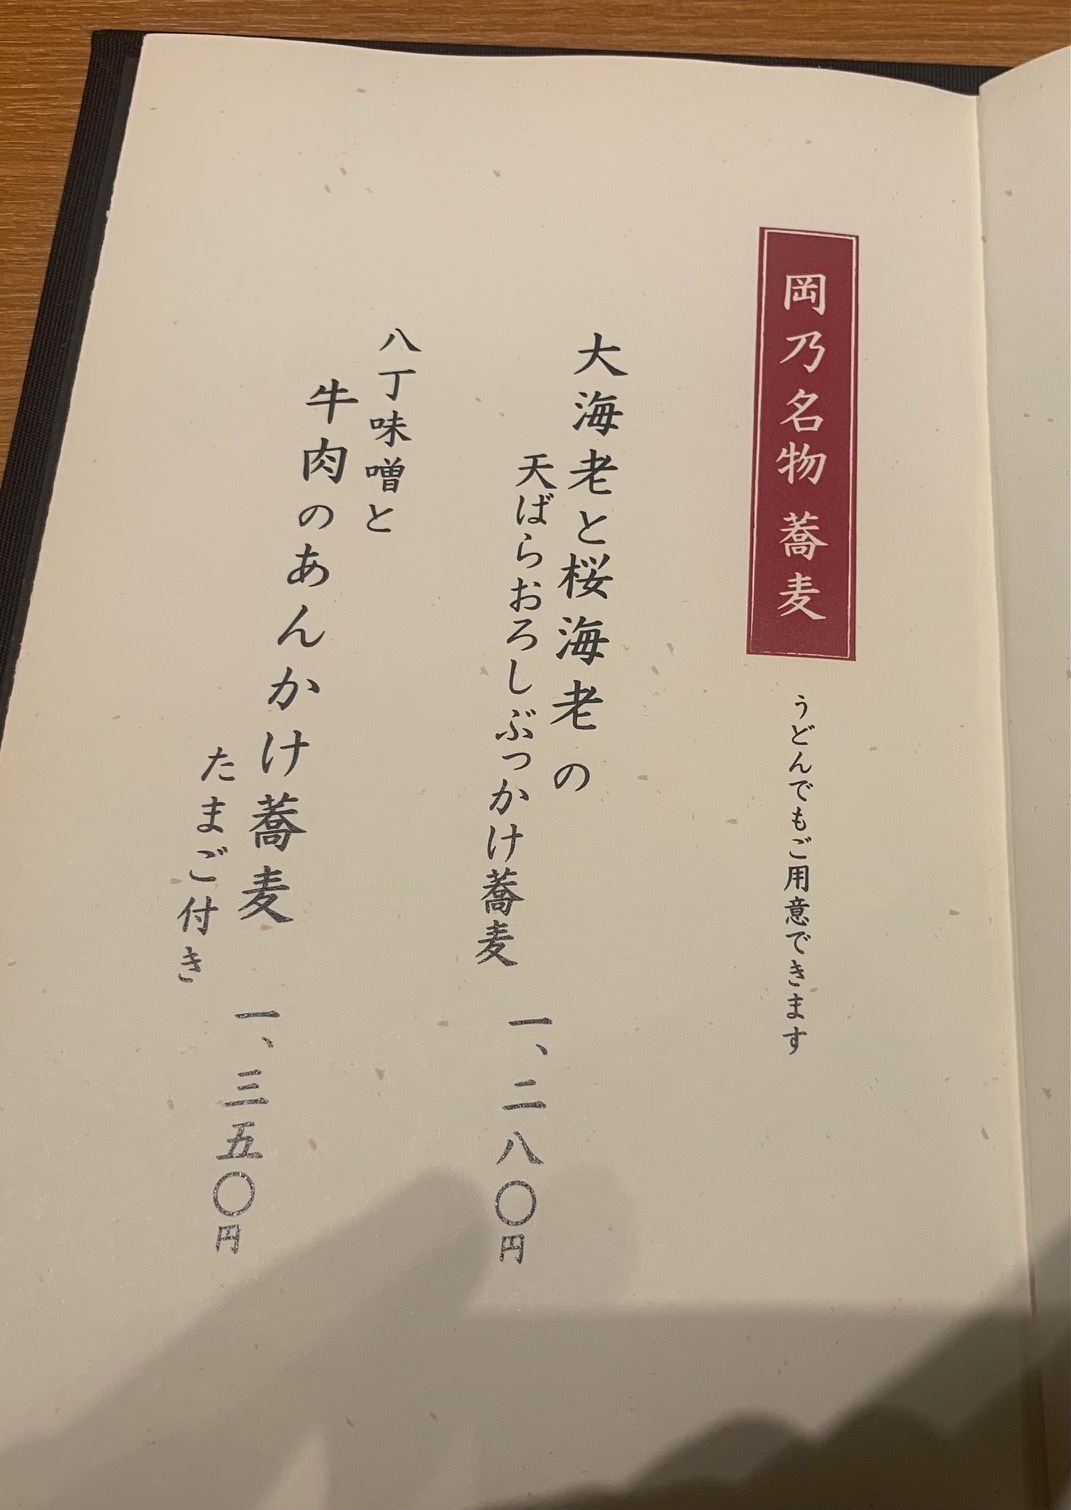 岡乃名物 蕎麦
うどんでもご用意できます
大海老と桜海老の
天ばらおろしぶっかけ蕎麦
一、二八〇円
八丁味噌と
牛肉のあんかけ蕎麦
たまご付き
一、三五〇円